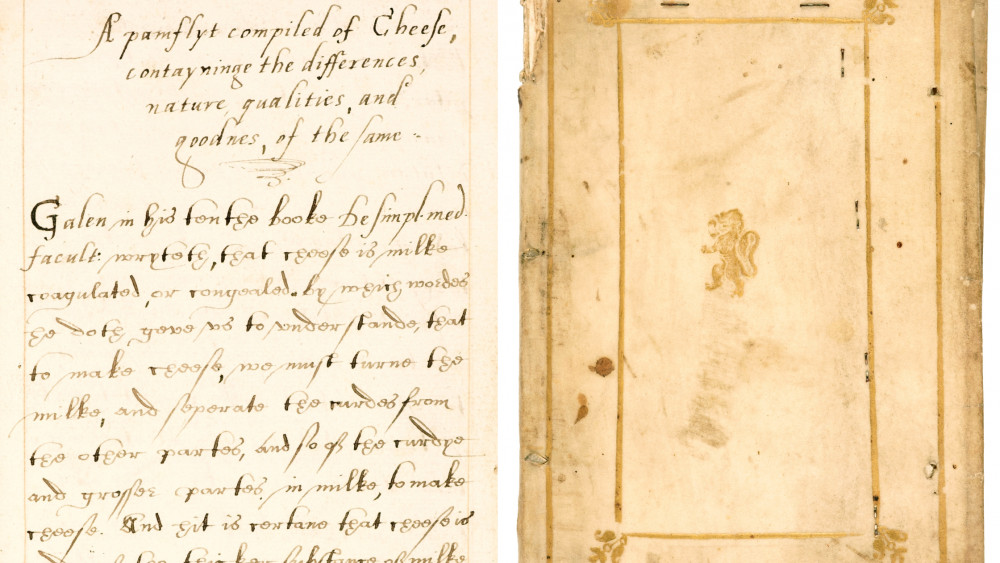 A pamflyt compiled of Cheese,
contayninge the differences,
nature, qualities, and
goodnes, of the same
Galen in his tenthe booke De simpl. med.
facult: wryteth, that cheese is milke
coagulated, or congealed. by which wordes
he doth geve us to understande, that
to make cheese, we must turne the
milke, and seperate the curdes from
the other partes, and so of the curdye
and grosser partes in milke, to make
cheese. And hit is certane that cheese is
thicker substance of milke